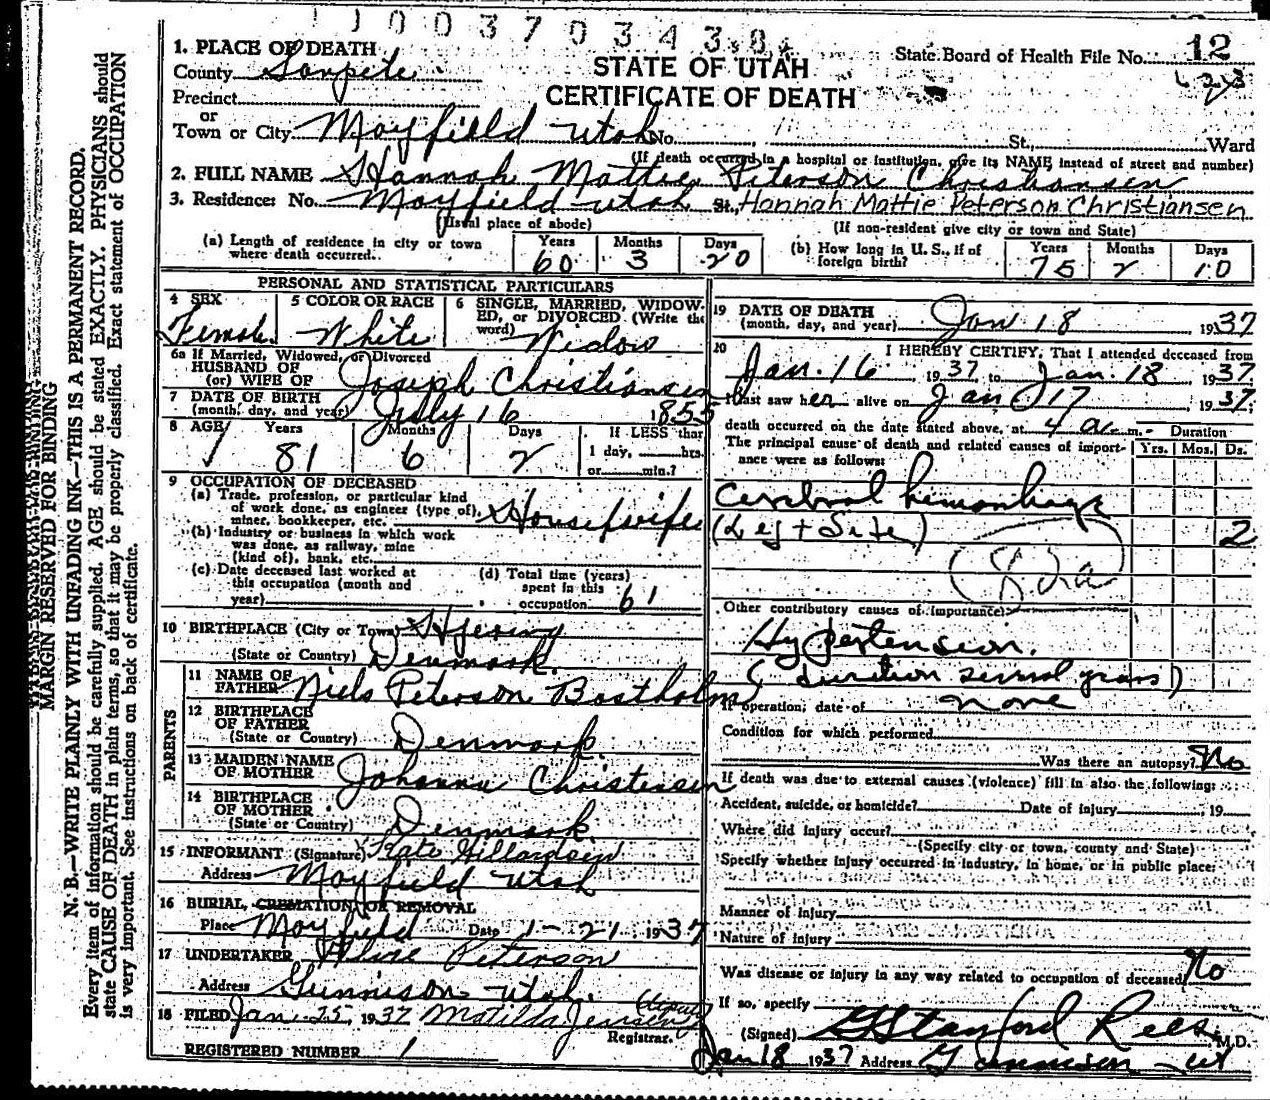 1 1 0 0 3 7 0 3 4 3 8
1. PLACE OF DEATH
County Sanpete
Precinct
or
Town or City Mayfield Utah No. St., Ward
STATE OF UTAH
CERTIFICATE OF DEATH
State Board of Health File No. 12
(If death occurred in a hospital or institution, give its NAME instead of street and number)
2. FULL NAME Hannah Mattie Peterson Christiansen
3. Residence: No. Mayfield Utah St., Hannah Mattie Peterson Christiansen
(Usual place of abode) (If non-resident give city or town and State)
(a) Length of residence in city or town where death occurred.. Years 60 Months 3 Days 20
(b) How long in U. S., if of foreign birth? Years 75 Months 2 Days 10
PERSONAL AND STATISTICAL PARTICULARS
4 SEX Female
5 COLOR OR RACE White
6 SINGLE, MARRIED, WIDOWED, or DIVORCED (Write the word) Widow
6a If Married, Widowed, or Divorced
HUSBAND OF
(or) WIFE OF Joseph Christiansen
7 DATE OF BIRTH
(month, day, and year) July 16 1855
8 AGE Years 81 Months 6 Days 2 If LESS than 1 day, hrs. or min.?
9 OCCUPATION OF DECEASED
(a) Trade, profession, or particular kind
of work done, as engineer (type of),
miner, bookkeeper, etc. Housewife
(b) Industry or business in which work
was done, as railway, mine
(kind of), bank, etc.
(c) Date deceased last worked at
this occupation (month and
year)
(d) Total time (years)
spent in this
occupation 61
10 BIRTHPLACE (City or Town) Hjering
(State or Country) Denmark
PARENTS
11 NAME OF
FATHER Niels Peterson Bastholm
12 BIRTHPLACE
OF FATHER
(State or Country) Denmark
13 MAIDEN NAME
OF MOTHER Johanna Christensen
14 BIRTHPLACE
OF MOTHER
(State or Country) Denmark
15 INFORMANT (Signature) Kate
Address Mayfield Utah
16 BURIAL, CREMATION, OR REMOVAL
Place Mayfield Date 1-21 1937
17 UNDERTAKER Peterson
Address Gunnison Utah.
18 FILED Jan. 25, 1937 Matilda Jensen
Registrar.
REGISTERED NUMBER 1
19 DATE OF DEATH
(month, day, and year) Jan 18 1937
20 I HEREBY CERTIFY, That I attended deceased from
Jan. 16 1937 to Jan. 18 1937
I last saw her alive on Jan 17 1937
death occurred on the date stated above, at 4 a m. Duration
The principal cause of death and related causes of importance were as follows: Yrs. Mos. Ds.
Cerebral hemorrhage
(Left Side) 2
Other contributory causes of importance:
Hypertension.
(duration several years)
If operation, date of none
Condition for which performed
Was there an autopsy? No
If death was due to external causes (violence) fill in also the following:
Accident, suicide, or homicide? Date of injury 19
Where did injury occur?
(Specify city or town, county and State)
Specify whether injury occurred in industry, in home, or in public place:
Manner of Injury
Nature of injury
Was disease or injury in any way related to occupation of deceased? No
If so, specify
(Signed) G Stanford Rees M.D.
Jan 18 1937 Address Gunnison - Ut
MARGIN RESERVED FOR BINDING
N. B.—WRITE PLAINLY WITH UNFADING INK—THIS IS A PERMANENT RECORD.
Every item of information should be carefully supplied. AGE should be stated EXACTLY. PHYSICIANS should
state CAUSE OF DEATH in plain terms, so that it may be properly classified. Exact statement of OCCUPATION
is very important. See instructions on back of certificate.